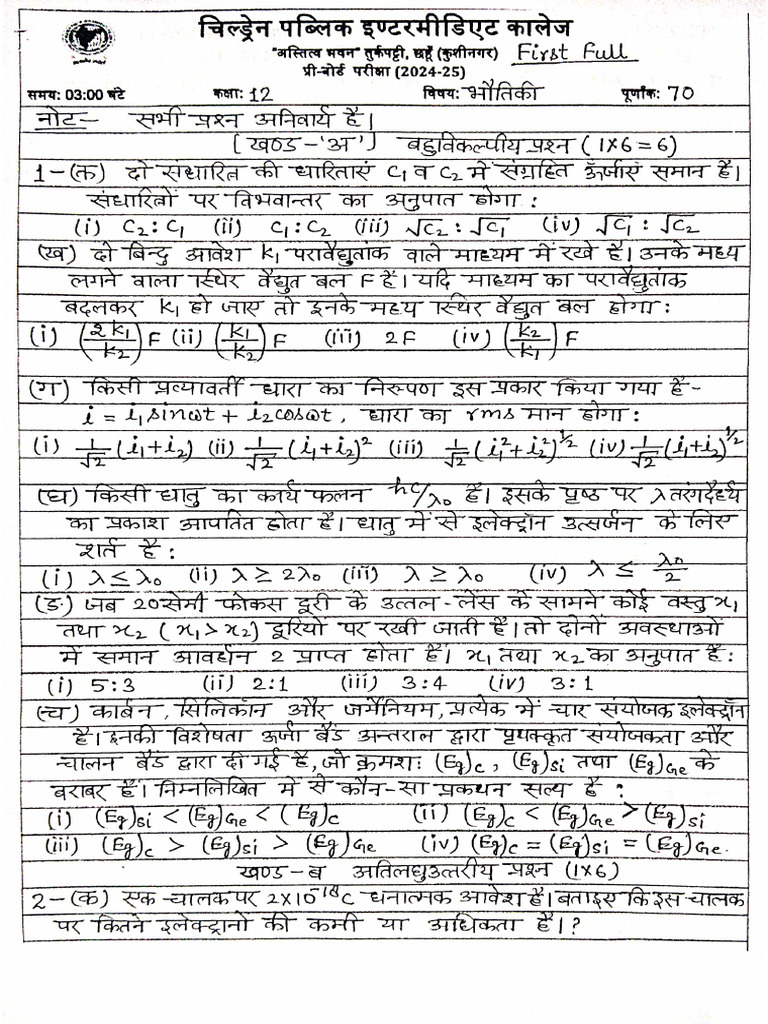 चिल्ड्रेन पब्लिक इण्टरमीडिएट कालेज
"अस्तित्व भवन" तुर्कपट्टी, छहूँ (कुशीनगर) First Full
प्री-बोर्ड परीक्षा (2024-25)
समय: 03:00 घंटे कक्षा: 12 विषय: भौतिकी पूर्णांक: 70
नोट:- सभी प्रश्न अनिवार्य है।
[खण्ड-'अ'] बहुविकल्पीय प्रश्न (1X6=6)
1-(क) दो संधारित की धारिताएं C₁ व C₂ में संग्रहित ऊँर्जाएं समान है।
संधारित्रों पर विभवान्तर का अनुपात होगा:
(i) C₂:C₁ (ii) C₁:C₂ (iii) √C₂:√C₁ (iv) √C₁:√C₂
(ख) दो बिन्दु आवेश K₁ परावैद्युतांक वाले माध्यम में रखे है। उनके मध्य
लगने वाला स्थिर वैद्युत बल F हैं। यदि माध्यम का परावैद्युतांक
बदलकर K₁ हो जाए तो इनके मध्य स्थिर वैद्युत बल होगा:
(i) (2K₁/K₂)F (ii) (K₁/K₂)F (iii) 2F (iv) (K₂/K₁)F
(ग) किसी प्रत्यावर्ती धारा का निरुपण इस प्रकार किया गया है-
i = i₁sinωt + i₂cosωt, धारा का rms मान होगा:
(i) 1/√2 (i₁+i₂) (ii) 1/√2 (i₁+i₂)² (iii) 1/√2 (i₁²+i₂²)^1/2 (iv) 1/√2 (i₁+i₂)^1/2
(घ) किसी धातु का कार्य फलन hc/λ₀ है। इसके पृष्ठ पर λ तरंगदैर्ध्य
का प्रकाश आपतित होता है। धातु में से इलेक्ट्रॉन उत्सर्जन के लिए
शर्त है:
(i) λ≤λ₀ (ii) λ≥2λ₀ (iii) λ≥λ₀ (iv) λ≤ λ₀/2
(ङ) जब 20 सेमी फोकस दूरी के उत्तल-लेंस के सामने कोई वस्तु x₁
तथा x₂ (x₁>x₂) दूरियों पर रखी जाती है। तो दोनों अवस्थाओं
में समान आवर्धन 2 प्राप्त होता है। x₁ तथा x₂ का अनुपात है:
(i) 5:3 (ii) 2:1 (iii) 3:4 (iv) 3:1
(च) कार्बन, सिलिकॉन और जर्मेनियम, प्रत्येक में चार संयोजक इलेक्ट्रॉन
है। इनकी विशेषता ऊर्जा बैंड अन्तराल द्वारा पृथक्कृत संयोजकता और
चालन बैंड द्वारा दी गई है, जो क्रमशः (Eg)c, (Eg)si तथा (Eg)Ge के
बराबर हैं। निम्नलिखित में से कौन-सा प्रकथन सत्य है:
(i) (Eg)si < (Eg)Ge < (Eg)c (ii) (Eg)c < (Eg)Ge > (Eg)si
(iii) (Eg)c > (Eg)si > (Eg)Ge (iv) (Eg)c = (Eg)si = (Eg)Ge.
खण्ड-ब अतिलघुउत्तरीय प्रश्न (1X6)
2-(क) एक चालक पर 2X10⁻¹⁸C धनात्मक आवेश है। बताइए कि इस चालक
पर कितने इलेक्ट्रानों की कमी या अधिकता है।?